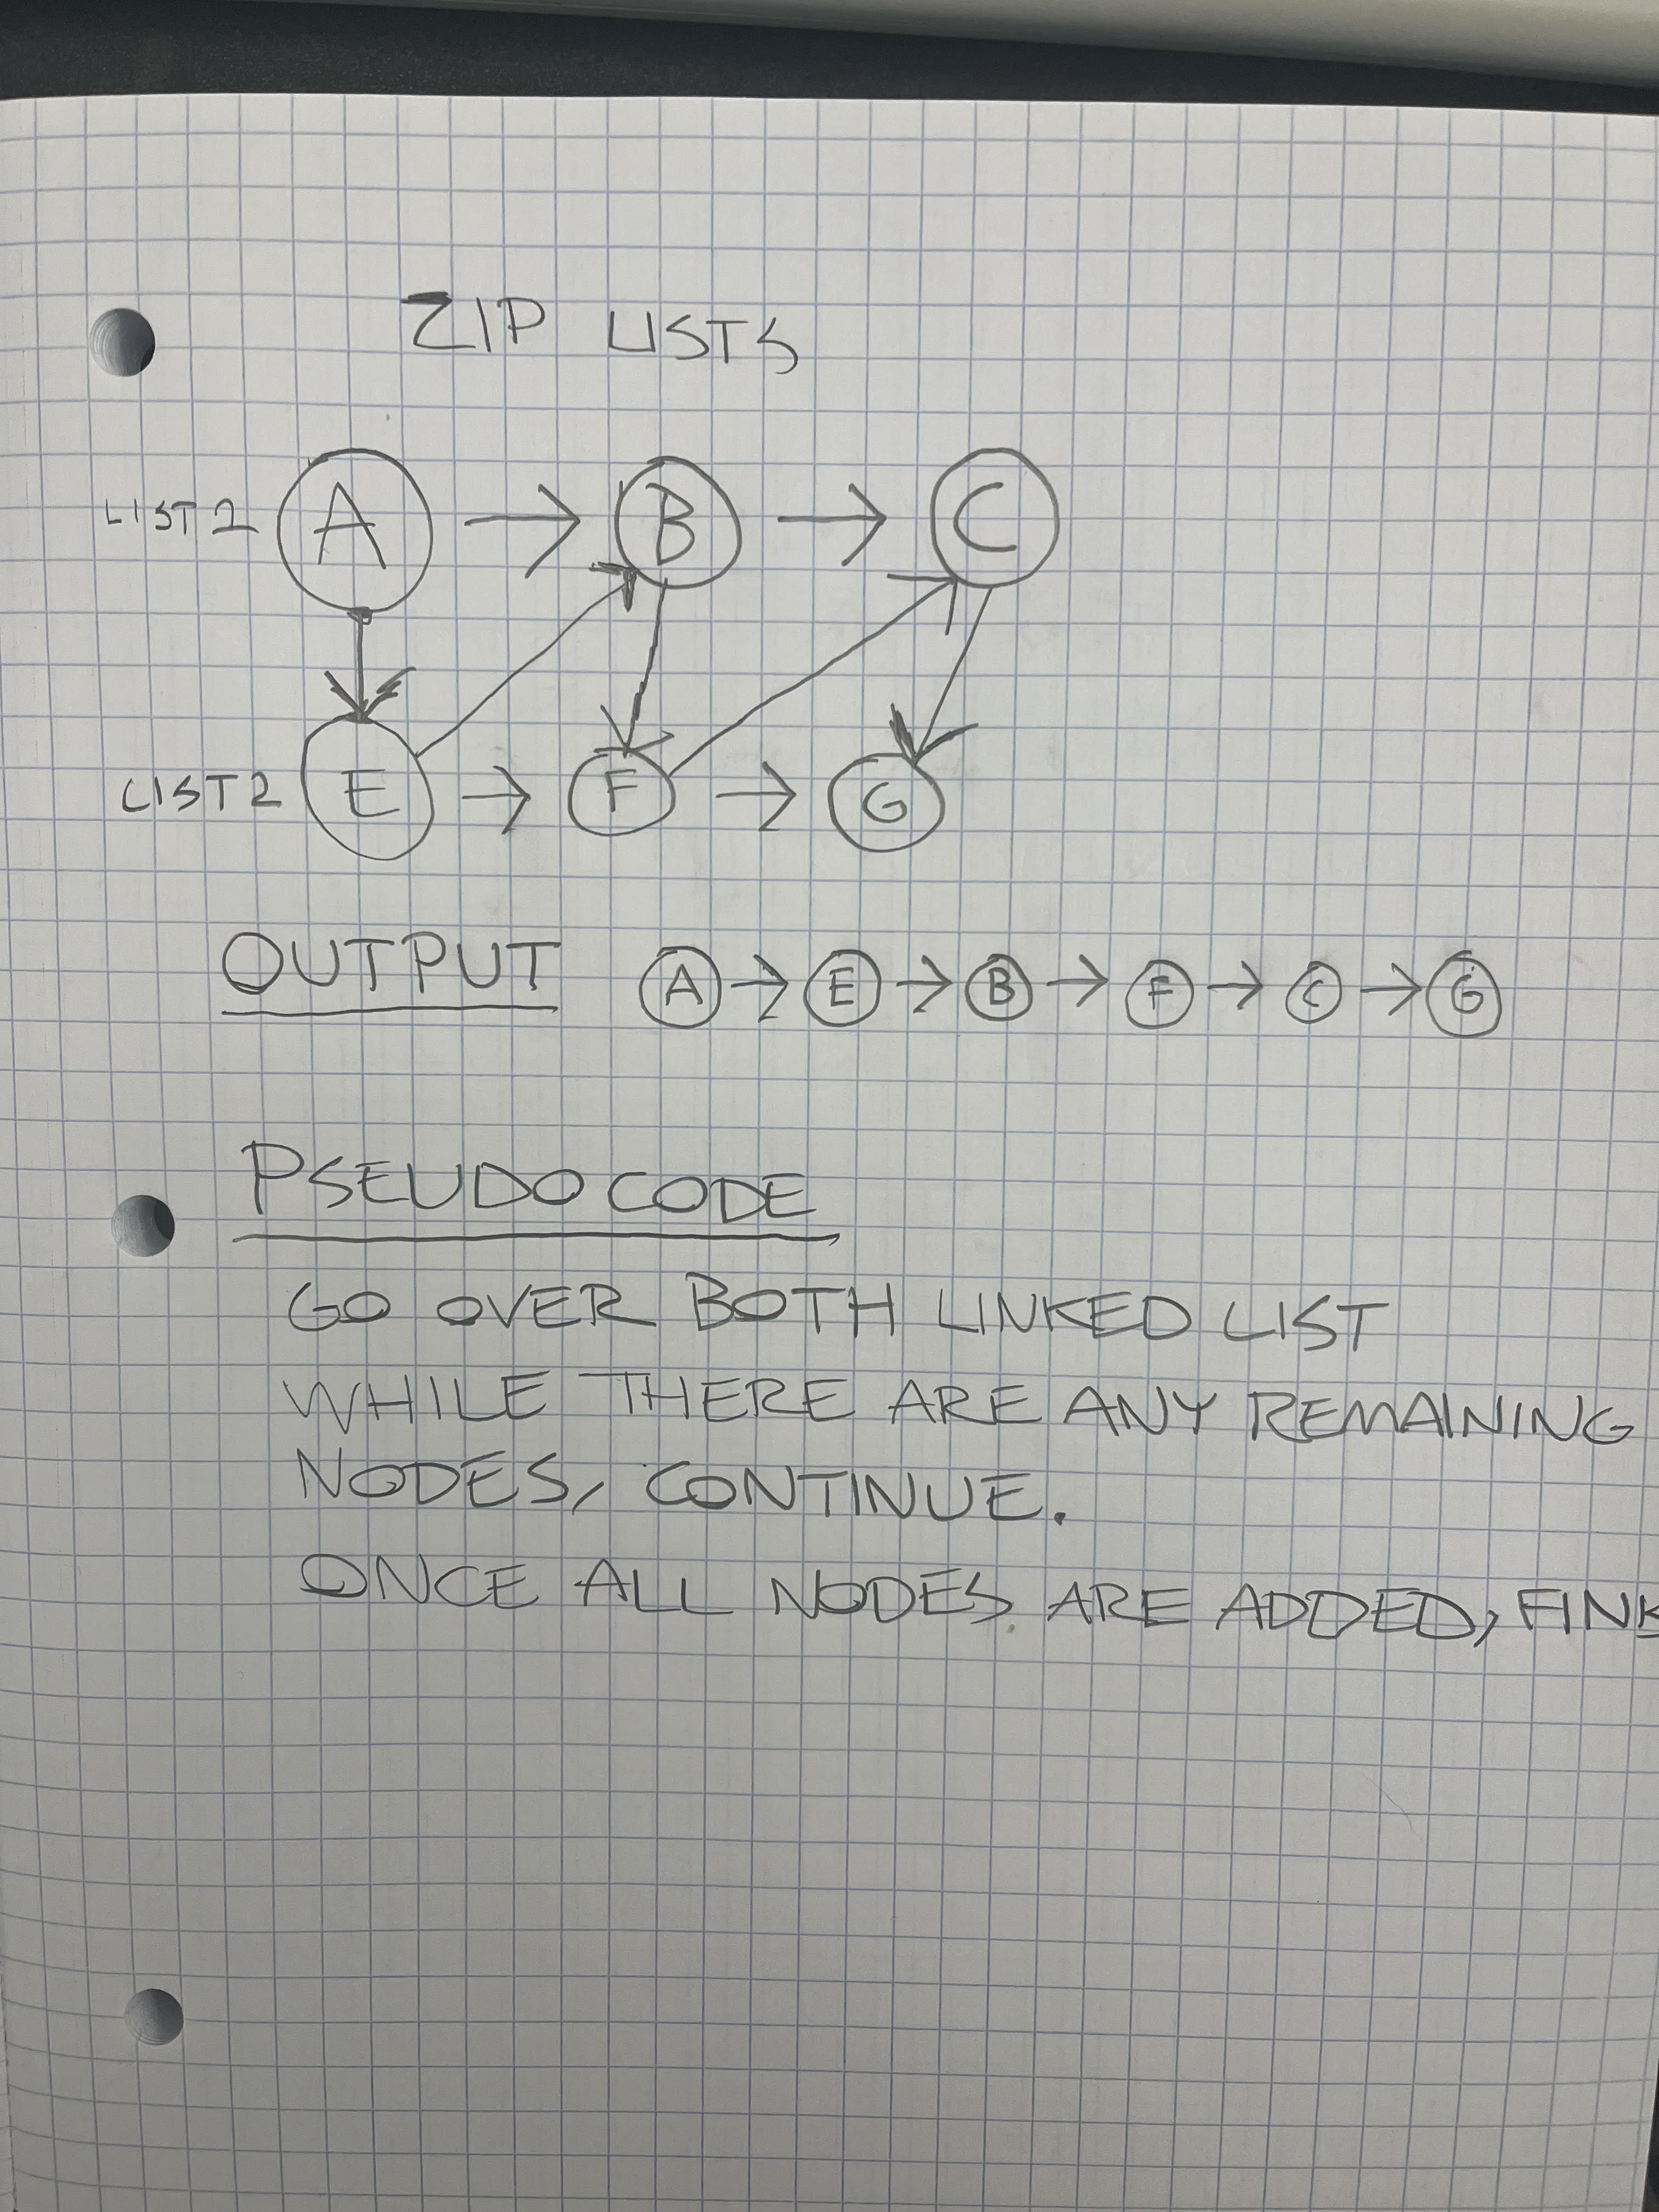 ZIP LISTS
LIST 2 A → B → C
LIST 2 E → F → G
OUTPUT A → E → B → F → C → G
PSEUDO CODE
GO OVER BOTH LINKED LIST
WHILE THERE ARE ANY REMAINING
NODES, CONTINUE.
ONCE ALL NODES ARE ADDED,